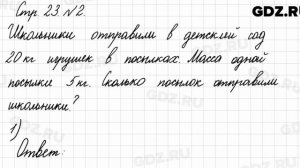 GDZ.RU
Стр. 23. №2.
Школьники отправили в детский сад
20 кг игрушек в посылках. Масса одной
посылки 5 кг. Сколько посылок отправили
школьники?
1)
Ответ:
GDZ.RU